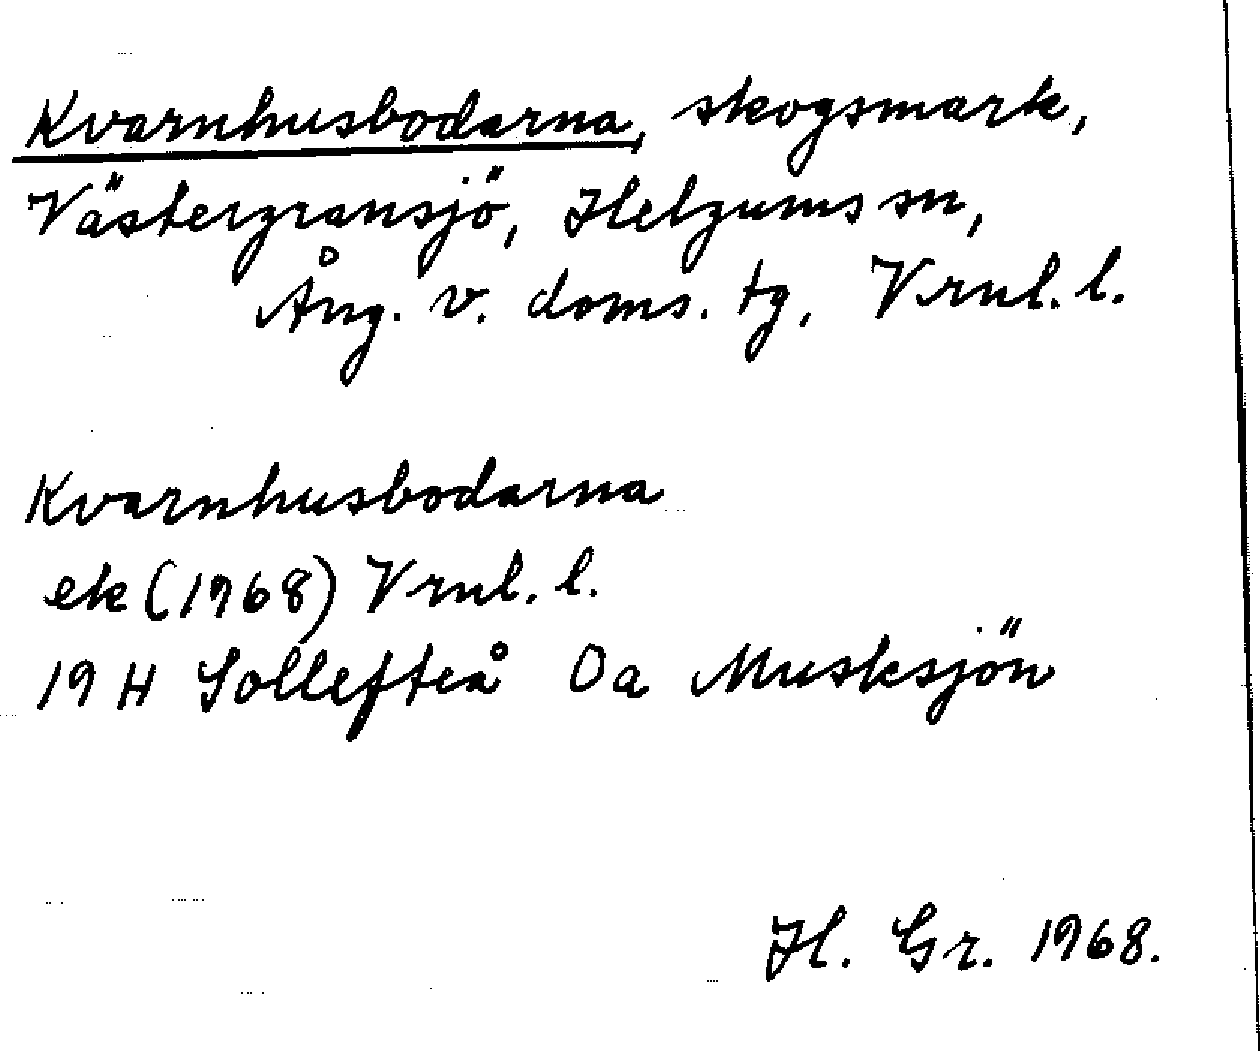 Kvarnhusbodarna, skogsmark,
Västergransjö, Helgums sn,
Ång. v. doms. tg, Vrnl. l.
Kvarnhusbodarna
ek (1968) Vrnl. l.
19 H Sollefteå 0a Musksjön
H. Gr. 1968.